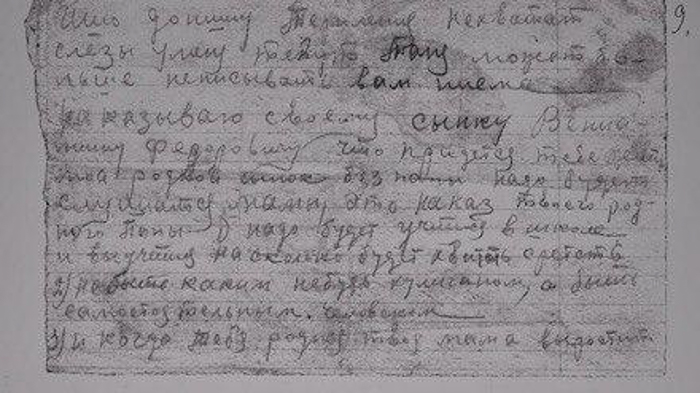 9.
допишу терпления нехватает
слёзы у меня текут может бо-
льше неписывать вам писма
наказываю своему сынку Вениа-
мину Федоровичу что придется тебе
родной без папы надо будет
слушатся мамы это наказ твоего род-
ного Папы 1) надо будет учится в школе
и выучится насколько будет хватать средств
2) небыть каким небудь хулиганом, а быть
самостоятельным человеком
3) и когда тебя родная твоя мама выростит